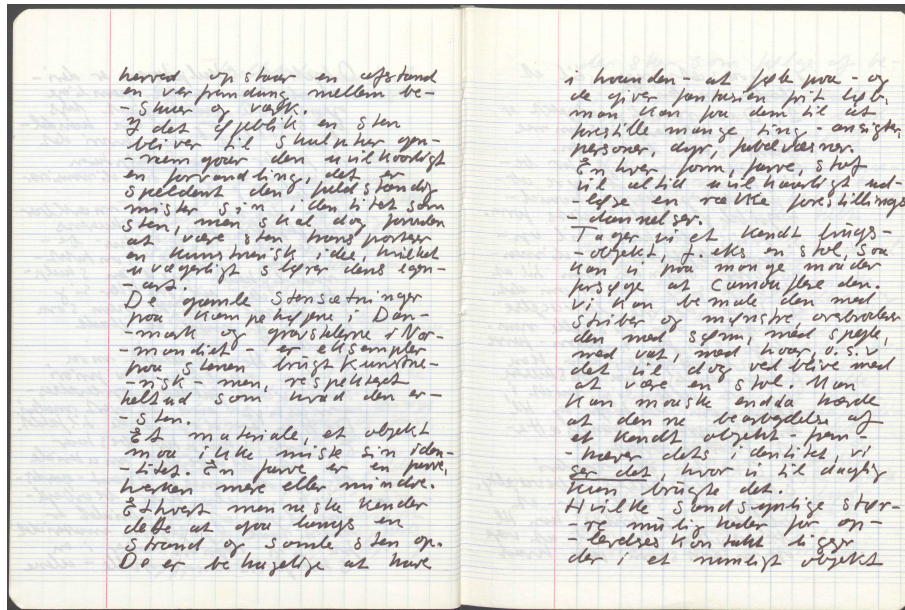 herved opstaar en afstand
en verfremdung mellem be-
-skuer og værk.
I det øjeblik en sten
bliver til skulptur gen-
-nemgaar den uvilkaarligt
en forvandling, det er
sjeldent den fuldstændig
mister sin identitet som
sten, men skal dog foruden
at være sten transportere
en kunstnerisk idee, hvilket
uvægerligt slører dens egen-
-art.
De gamle stensætninger
paa kæmpehøjene i Dan-
-mark og gravstelerne i Nor-
-mandiet er eksempler
paa stenen brugt kunstne-
-risk - men, respekteret
heltud som hvad den er -
- sten.
Et materiale, et objekt
maa ikke miste sin iden-
-titet. En farve er en farve,
hverken mere eller mindre.
Ethvert menneske kender
dette at gaa langs en
strand og samle sten op.
De er behagelige at have
i haanden - at føle paa - og
de giver fantasien frit løb,
man kan faa dem til at
forestille mange ting - ansigter
personer, dyr, fabelvæsner.
Enhver form, farve, stof
vil altid uvilkaarligt ud-
-løse en række forestillings
-dannelser.
Tager vi et kendt brugs-
-objekt, f.eks en stol, saa
kan vi paa mange maader
forsøge at camouflere den.
Vi kan bemale den med
striber og mønstre, overbrodere
den med søm, med spejle,
med vat, med haar, o.s.v
det vil dog vedblive med
at være en stol. Man
kan maaske endda hævde
at denne bearbejdelse af
et kendt objekt - frem-
-hæver dets identitet, vi
ser det, hvor vi til daglig
kun brugte det.
Hvilke sandsynlige større
-re muligheder for op-
-levelses kontakt ligger
der i et rumligt objekt